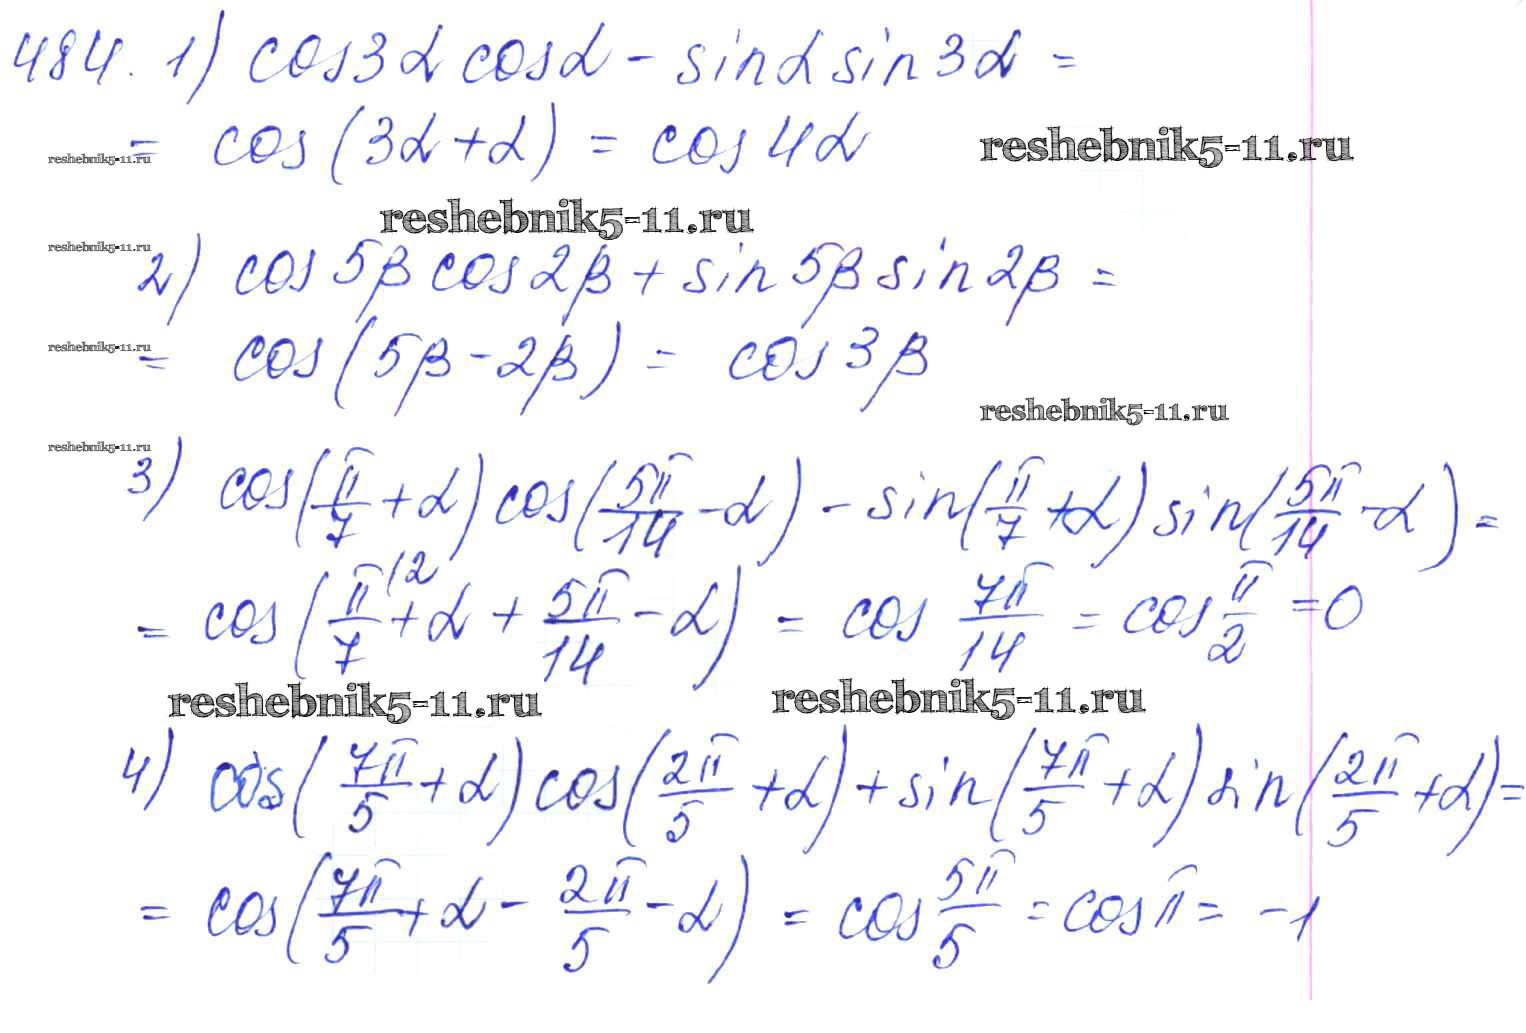 484. 1) cos3α cosα - sinα sin3α =
= cos(3α+α) = cos4α
reshebnik5-11.ru
reshebnik5-11.ru
reshebnik5-11.ru
reshebnik5-11.ru
2) cos5β cos2β + sin5β sin2β =
= cos(5β-2β) = cos3β
reshebnik5-11.ru
reshebnik5-11.ru
reshebnik5-11.ru
3) cos(π/7+α) cos(5π/14-α) - sin(π/7+α) sin(5π/14-α) =
= cos(π/7 (2 +α + 5π/14 - α) = cos 7π/14 = cos π/2 = 0
reshebnik5-11.ru
reshebnik5-11.ru
4) cos(7π/5+α) cos(2π/5+α) + sin(7π/5+α) sin(2π/5+α) =
= cos(7π/5+α - 2π/5 - α) = cos 5π/5 = cosπ = -1